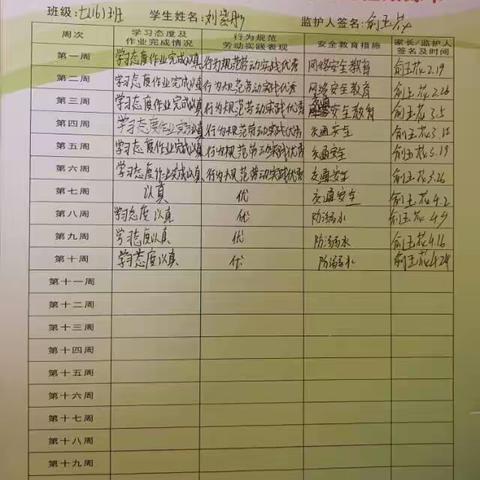 班级:七(16)班 学生姓名:刘 监护人签名:俞玉花
周次 学习态度及作业完成情况 行为规范劳动实践表现 安全教育措施 家长/监护人签名及时间
第一周 学习态度作业完成认真 行为规范劳动实践优秀 网络安全教育 俞玉花2.19
第二周 学习态度作业完成认真 行为规范劳动实践优秀 网络安全教育 俞玉花2.26
第三周 学习态度作业完成认真 行为规范劳动实践优秀 安全教育 俞玉花3.5
第四周 学习态度作业完成认真 行为规范劳动实践优秀 交通安全 俞玉花3.12
第五周 学习态度作业完成认真 行为规范劳动实践优秀 交通安全 俞玉花3.19
第六周 学习态度作业完成认真 行为规范劳动实践优秀 交通安全 俞玉花3.26
第七周 认真 优 交通安全 俞玉花4.2
第八周 学习态度认真 优 防溺水 俞玉花4.9
第九周 学习态度认真 优 防溺水 俞玉花4.16
第十周 学习态度认真 优 防溺水 俞玉花4.24
第十一周
第十二周
第十三周
第十四周
第十五周
第十六周
第十七周
第十八周
第十九周